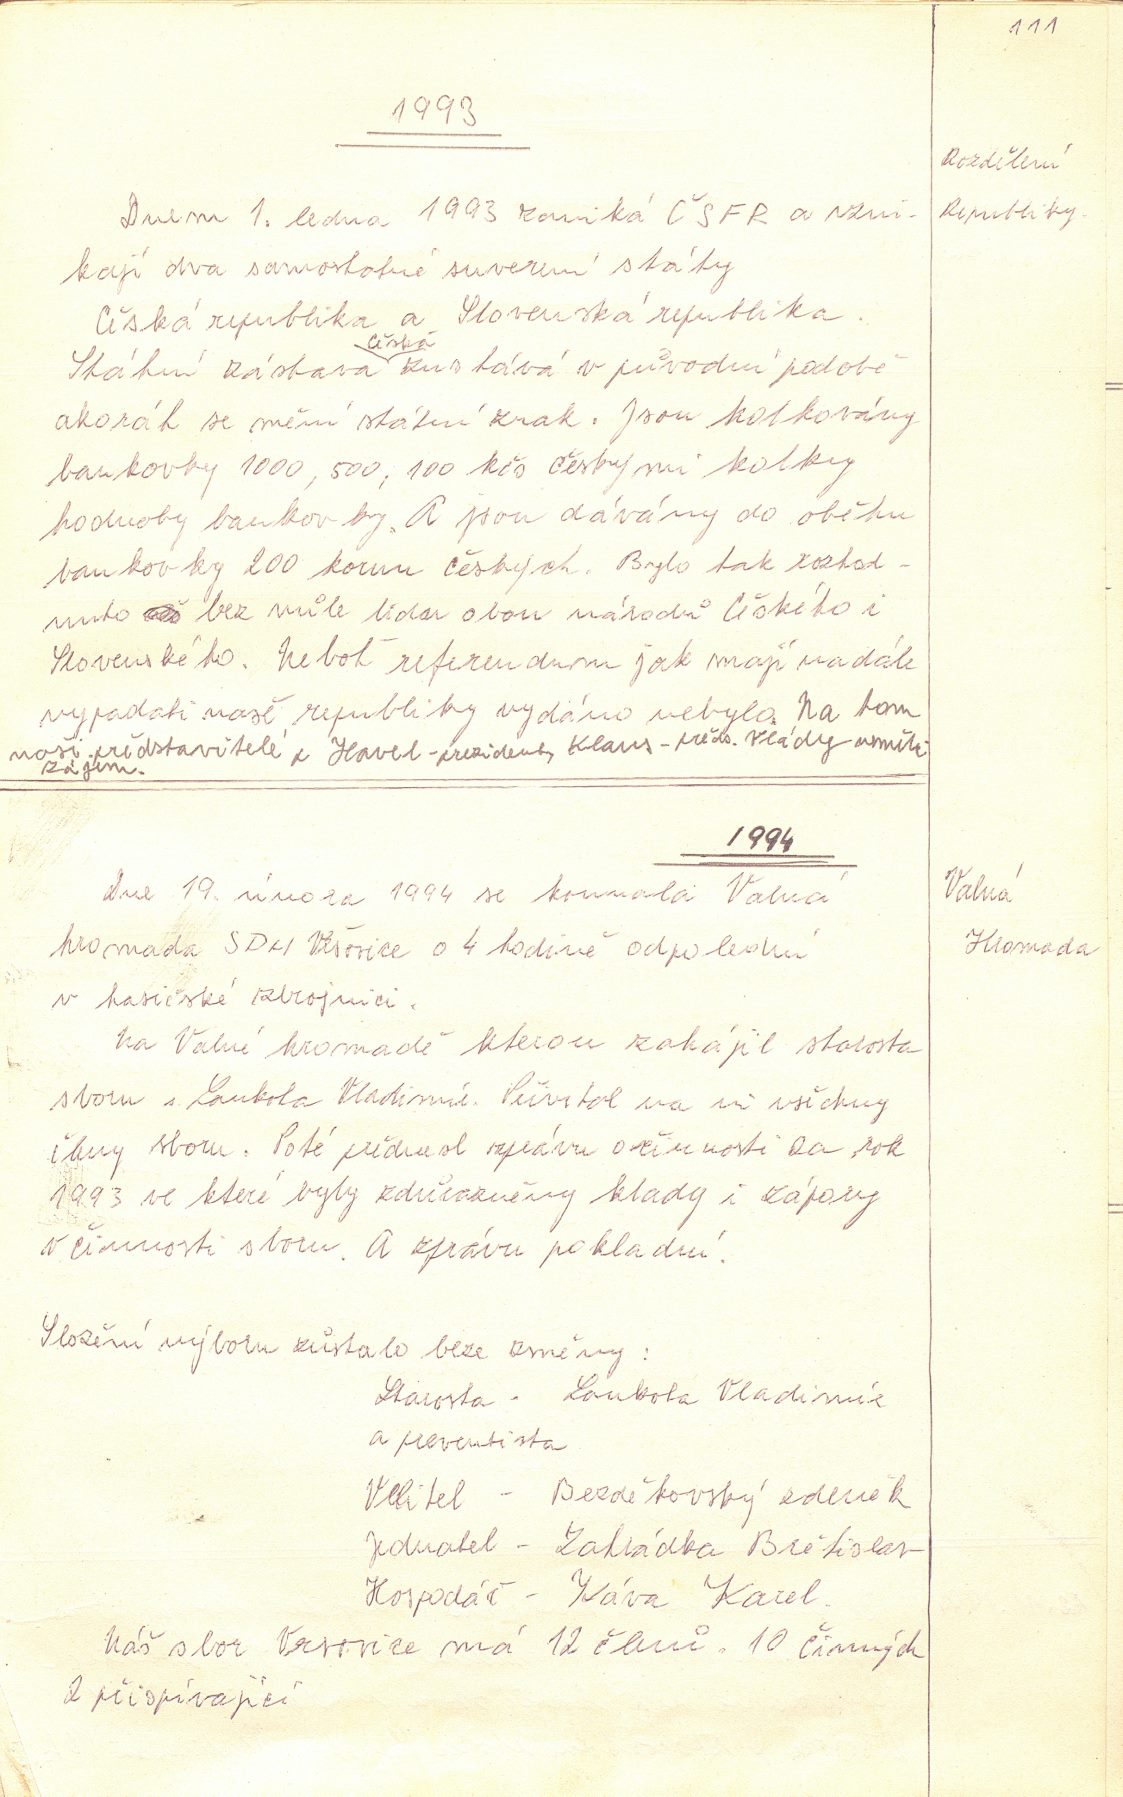 111
1993
Rozdělení
Republiky.
Dnem 1. ledna 1993 zaniká ČSFR a vzni-
kají dva samostatné suverení státy
Česká republika a Slovenská republika.
česká
Státní zástava zustává v původní podobě
akorát se mění státní znak. Jsou kolkovány
bankovky 1000, 500, 100 kčs českými kolky
hodnoby bankovky. A jsou dávány do oběhu
bankovky 200 korun českých. Bylo tak rozhod-
nuto bez vůle lidu obou národů Českého i
Slovenského. Neboť referendum jak mají nadále
vypadati naše republiky vydáno nebylo. Na tom
naši představitelé p Havel - prezident, Klaus - před. vlády neměli
zájem.
1994
Valná
Hromada
Dne 19. února 1994 se konnala Valná
hromada SDH Vršovice o 4 hodině odpolední
v hasičské zbrojnici.
Na Valné hromadě kterou zahájil starosta
sboru s. Loukola Vladimír. Přivítal na ní všechny
členy sboru. Poté přednesl zprávu o činnosti za rok
1993 ve které byly zdůrazněny klady i zápory
v činnosti sboru. A zprávu pokladní.
Složění výboru zůstalo beze změny:
Starosta - Loukola Vladimír
a preventista
Velitel - Bezděkovský Zdeněk
Jednatel - Zahrádka Břetislav
Hospodář - Káva Karel.
Náš sbor Vrsovice má 12 členů. 10 činných
2 přispívající